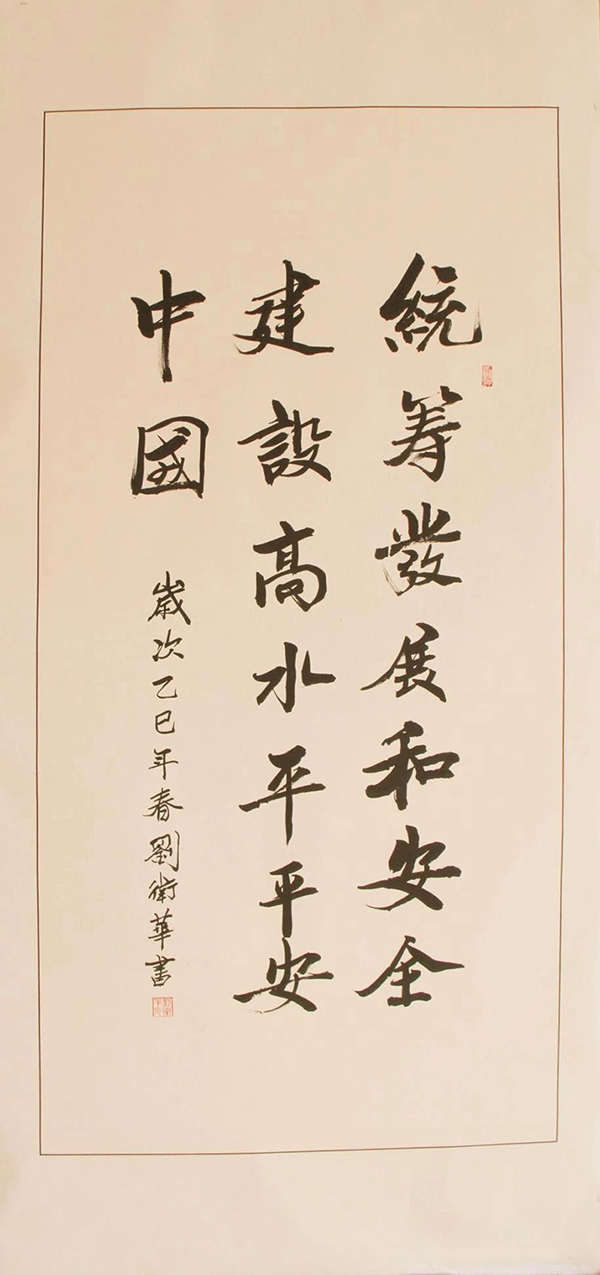 統筹發展和安全
建設高水平平安
中國
歲次乙巳年春劉衛華書